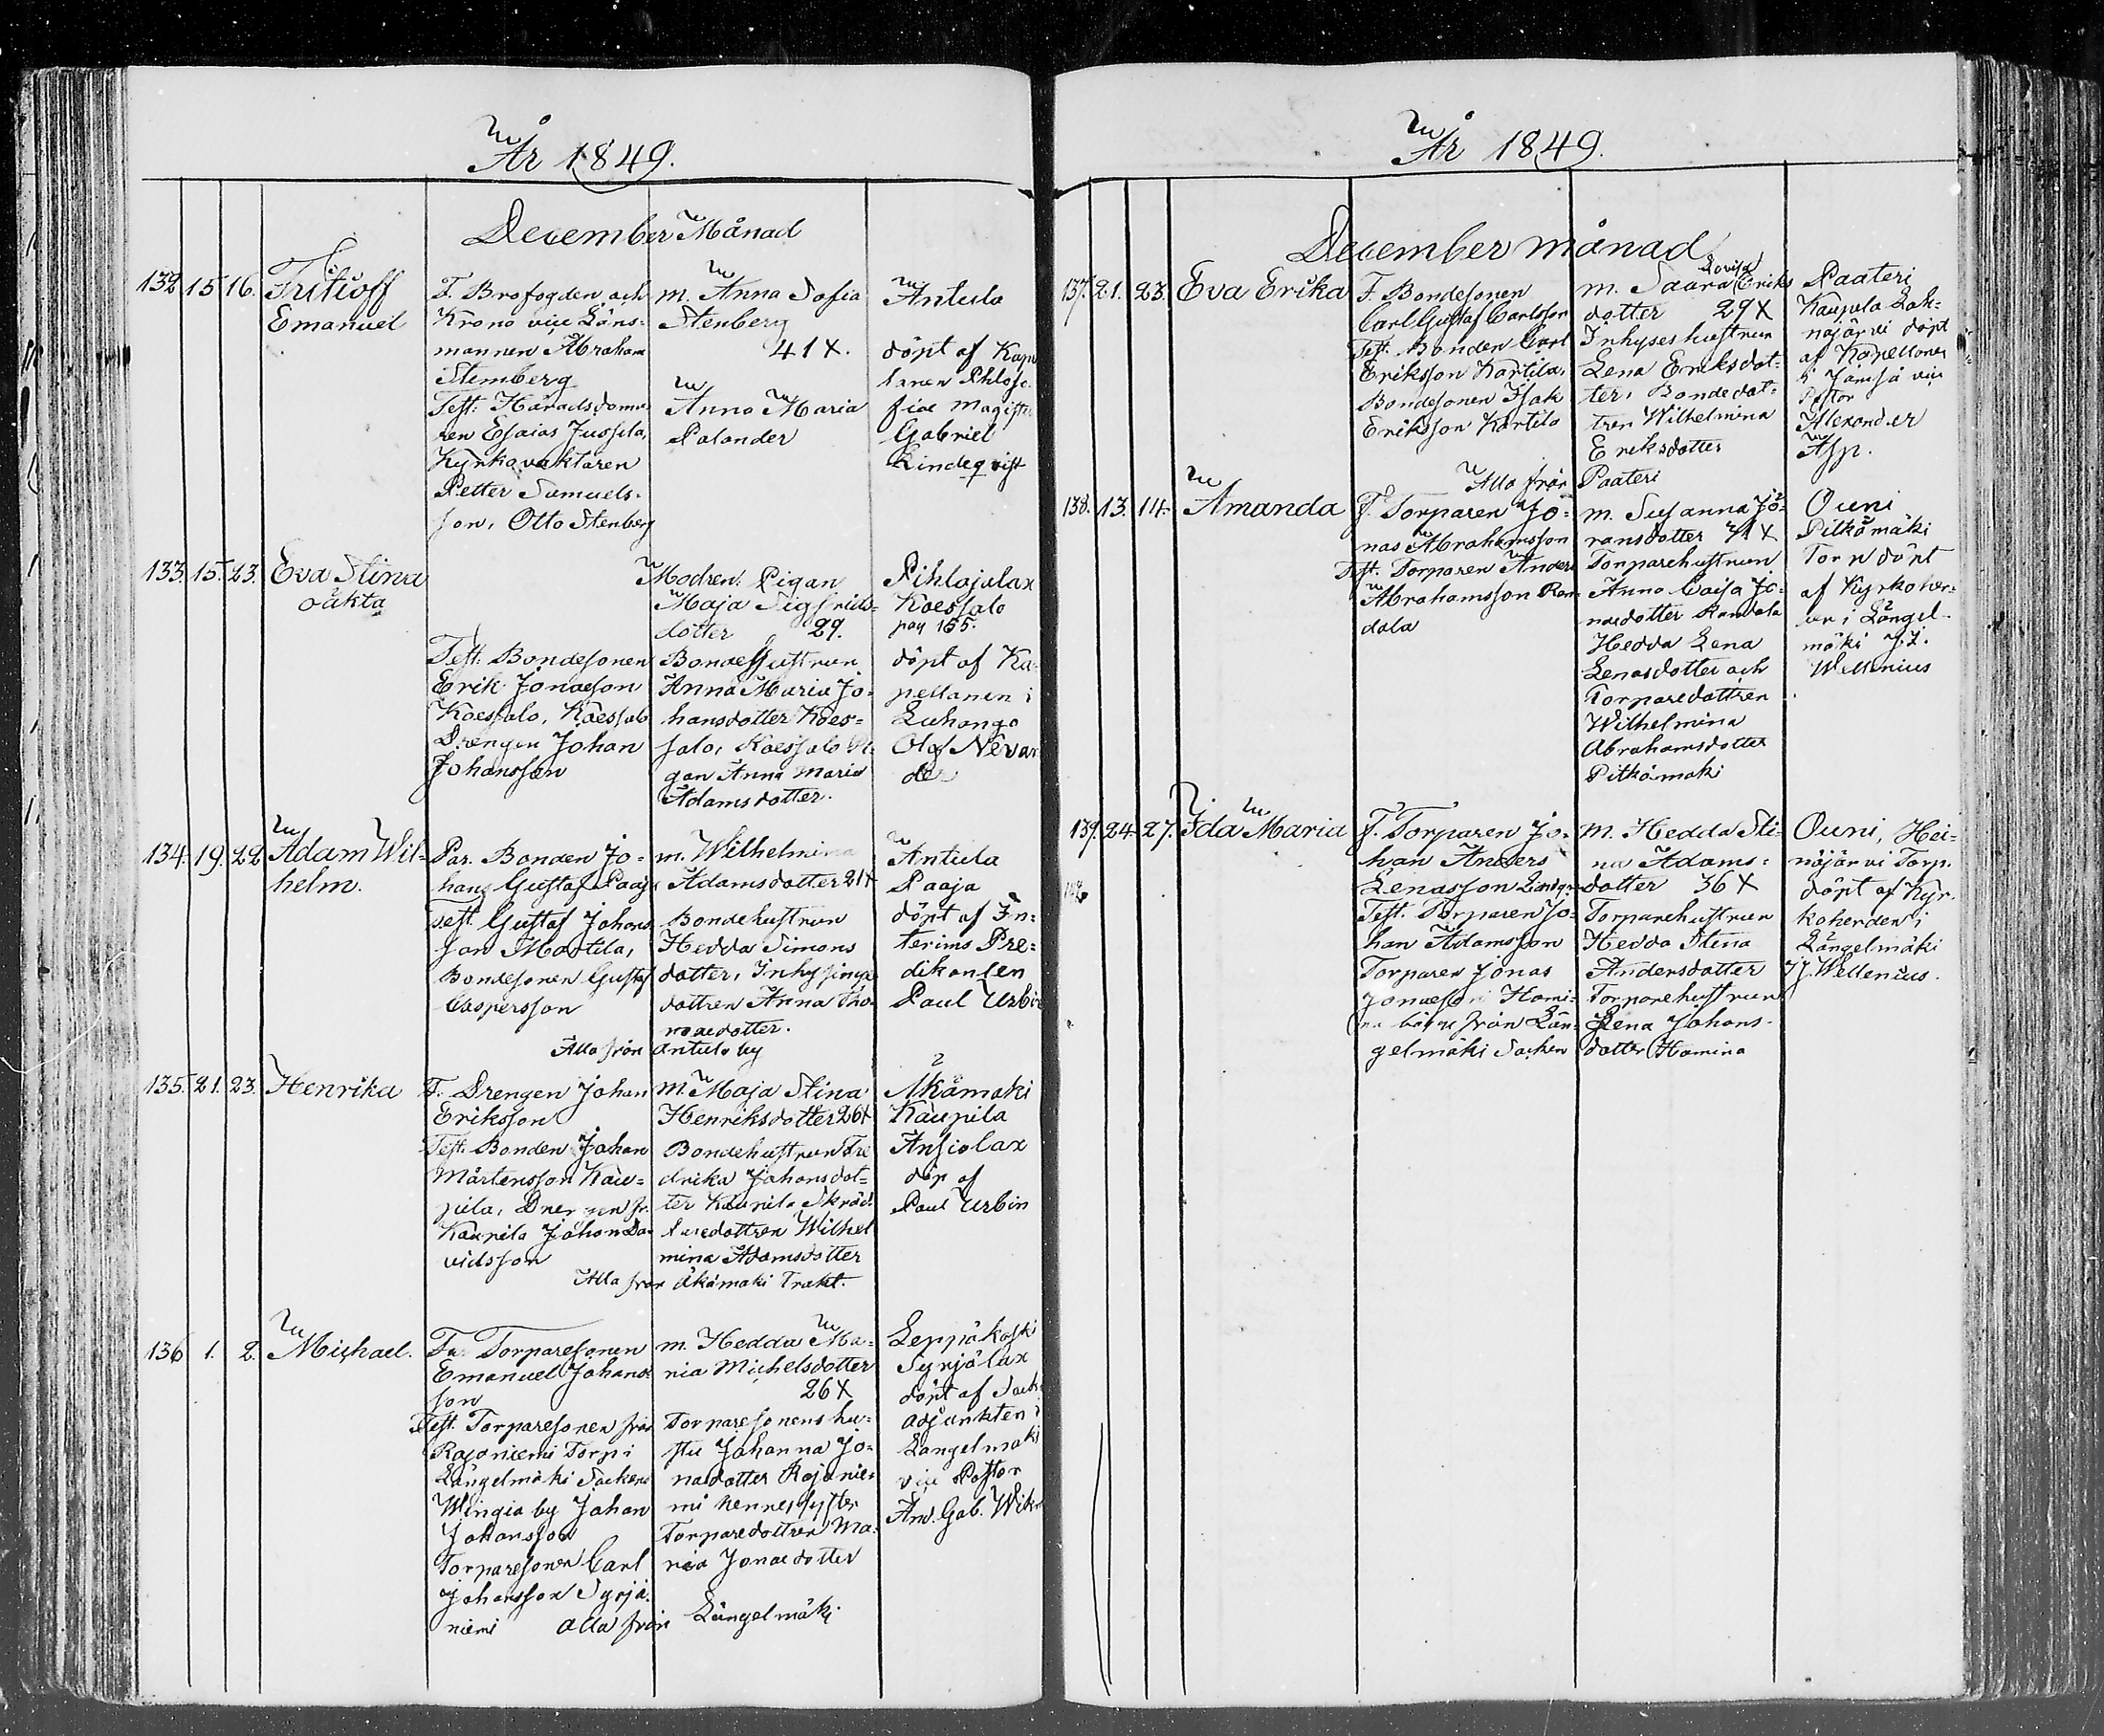 År 1849.
December Månad
132 15 16. Fritioff
Emanuel
F. Brofogden och
Krono vice Läns-
mannen Abraham
Stenberg
Test: Häradsdoma-
ren Esaias Jussila,
Kyrkovaktaren
Petter Samuels-
son, Otto Stenberg
m. Anna Sofia
Stenberg
41 X.
Anna Maria
Palander
Antula
döpt af Kapel
lanen Philoso-
fiae Magistr
Gabriel
Lindeqvist
133. 15. 23. Eva Stina
oäkta
Test. Bondesonen
Erik Jonasson
Koessalo, Koessalo
Drengen Johan
Johansson
Modren: Pigan
Maja Sigfrids-
dotter 29.
Bondehustrun
Anna Maria Jo-
hansdotter Koes-
salo, Koessalo Pi-
gan Anna Maria
Adamsdotter.
Pihlajalax
Koessalo
pag 155.
döpt af Ka-
pellanen i
Luhango
Olof Nevan
der
134. 19. 22 Adam Wil-
helm.
Par. Bonden Jo-
hans Gustaf Paaja
Test. Gustaf Johans
son Martila,
Bondesonen Gustaf
Caspersson
m. Wilhelmina
Adamsdotter 21 X
Bondehustrun
Hedda Simons
dotter, Inhysinge
dottren Anna Tho-
masdotter.
Alla från Antula by
Antula
Paaja
döpt af In-
terims Pre-
dikanten
Paul Urbin
135. 21. 23. Henrika
F. Drengen Johan
Eriksson
Test. Bonden Johan
Mårtensson Kau-
pila, Drengen fr.
Kaupila Johan Da-
vidsson
m. Maja Stina
Henriksdotter 26 X
Bondehustrun Fre
drika Johansdot-
ter Kaupila Skräd-
daredottren Wilhel
mina Adamsdotter
Alla från Åkämaki Trakt.
Åkämaki
Kaupila
Ansiolax
döp af
Paul Urbin
136 1. 2. Michael.
Far Torparesonen
Emanuel Johans
son
Test. Torparesonen från
Rajaniemi Torp i
Längelmäki Socken
Wingia by Johan
Johansson
Torparesonen Carl
Johansson Syrjä-
niemi alla från Längelmäki
m. Hedda Ma-
ria Michelsdotter
26 X
Torparesonens hu-
stru Johanna Jo-
nasdotter Rajanie-
mi hennes syster
Torparedottren Ma-
ria Jonasdotter
Leppäkoski
Syrjälax
döpt af Sock
adjunkten i
Längelmäki
vice Pastor
And. Gab. Wikm
År 1849.
December månad
137. 21. 23. Eva Erika
F. Bondesonen
Carl Gustaf Carlsson
Test. Bonden Carl
Eriksson Kartila,
Bondesonen Isak
Eriksson Kartila
Lovisa
m. Saara Eriks
dotter 29 X
Inhyseshustrun
Lena Eriksdot-
ter, Bondedot-
tren Wilhelmina
Eriksdotter
Alla från Paateri
Paateri
Kaupila Lah-
najärvi döpt
af Kapellanen
i Jämsä vice
Pastor
Alexander
Asp.
138. 13. 14. Amanda
F. Torparen Jo-
nas Abrahamsson
Test. Torparen Anders
Abrahamsson Ran-
dala
m. Susanna Jö-
ransdotter 41 X
Torparehustrun
Anna Caisa Jo-
nasdotter Randala
Hedda Lena
Lenasdotter och
Torparedottren
Wilhelmina
Abrahamsdotter
Pitkämäki
Ouni
Pitkämäki
Torp döpt
af Kyrkoher-
den i Längel-
mäki J. J.
Wellenius
139. 24. 27. Ida Maria
F. Torparen Jo-
han Anders
Lenasson
Test. Torparen Jo-
han Adamsson
Torparen Jonas
Jonasson Hami-
na från Län-
gelmäki Socken
m. Hedda Sti-
na Adams-
dotter 36 X
Torparehustrun
Hedda Stina
Andersdotter
Torparehustrun
Lena Johans-
dotter Hamina
Ouni, Hei-
näjärvi Torp.
döpt af Kyr-
koherden i
Längelmäki
J. J. Wellenius.